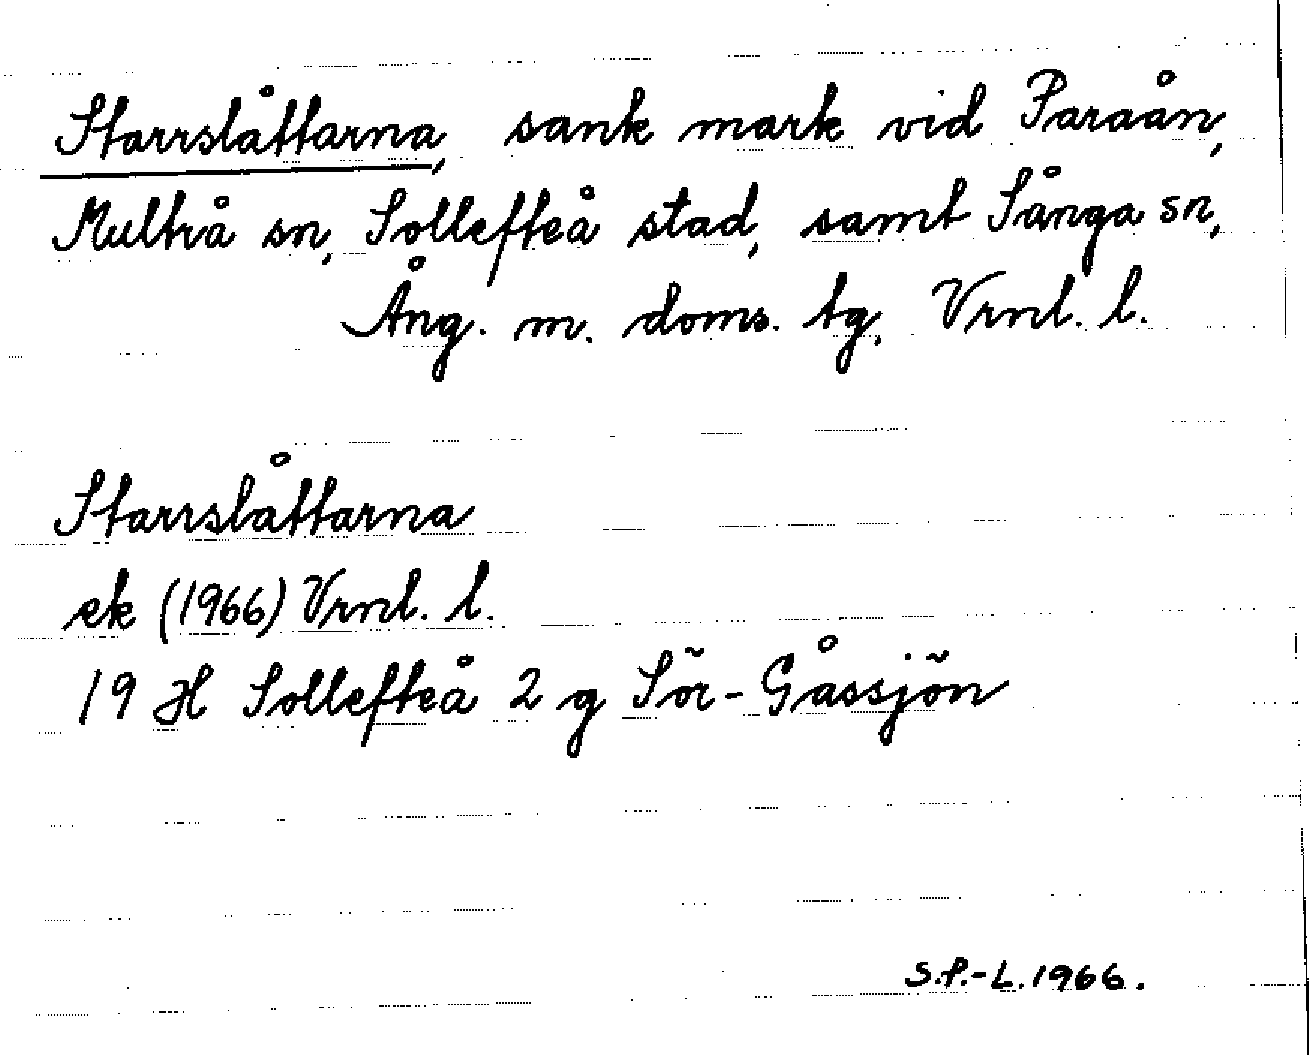 Starrslåttarna, sank mark vid Paraån,
Multrå sn, Sollefteå stad, samt Sånga sn,
Ång. m. doms. tg, Vrnl. l.
Starrslåttarna
ek (1966) Vrnl. l.
19 H Sollefteå 2 g Sör-Gåssjön
S.P.-L. 1966.